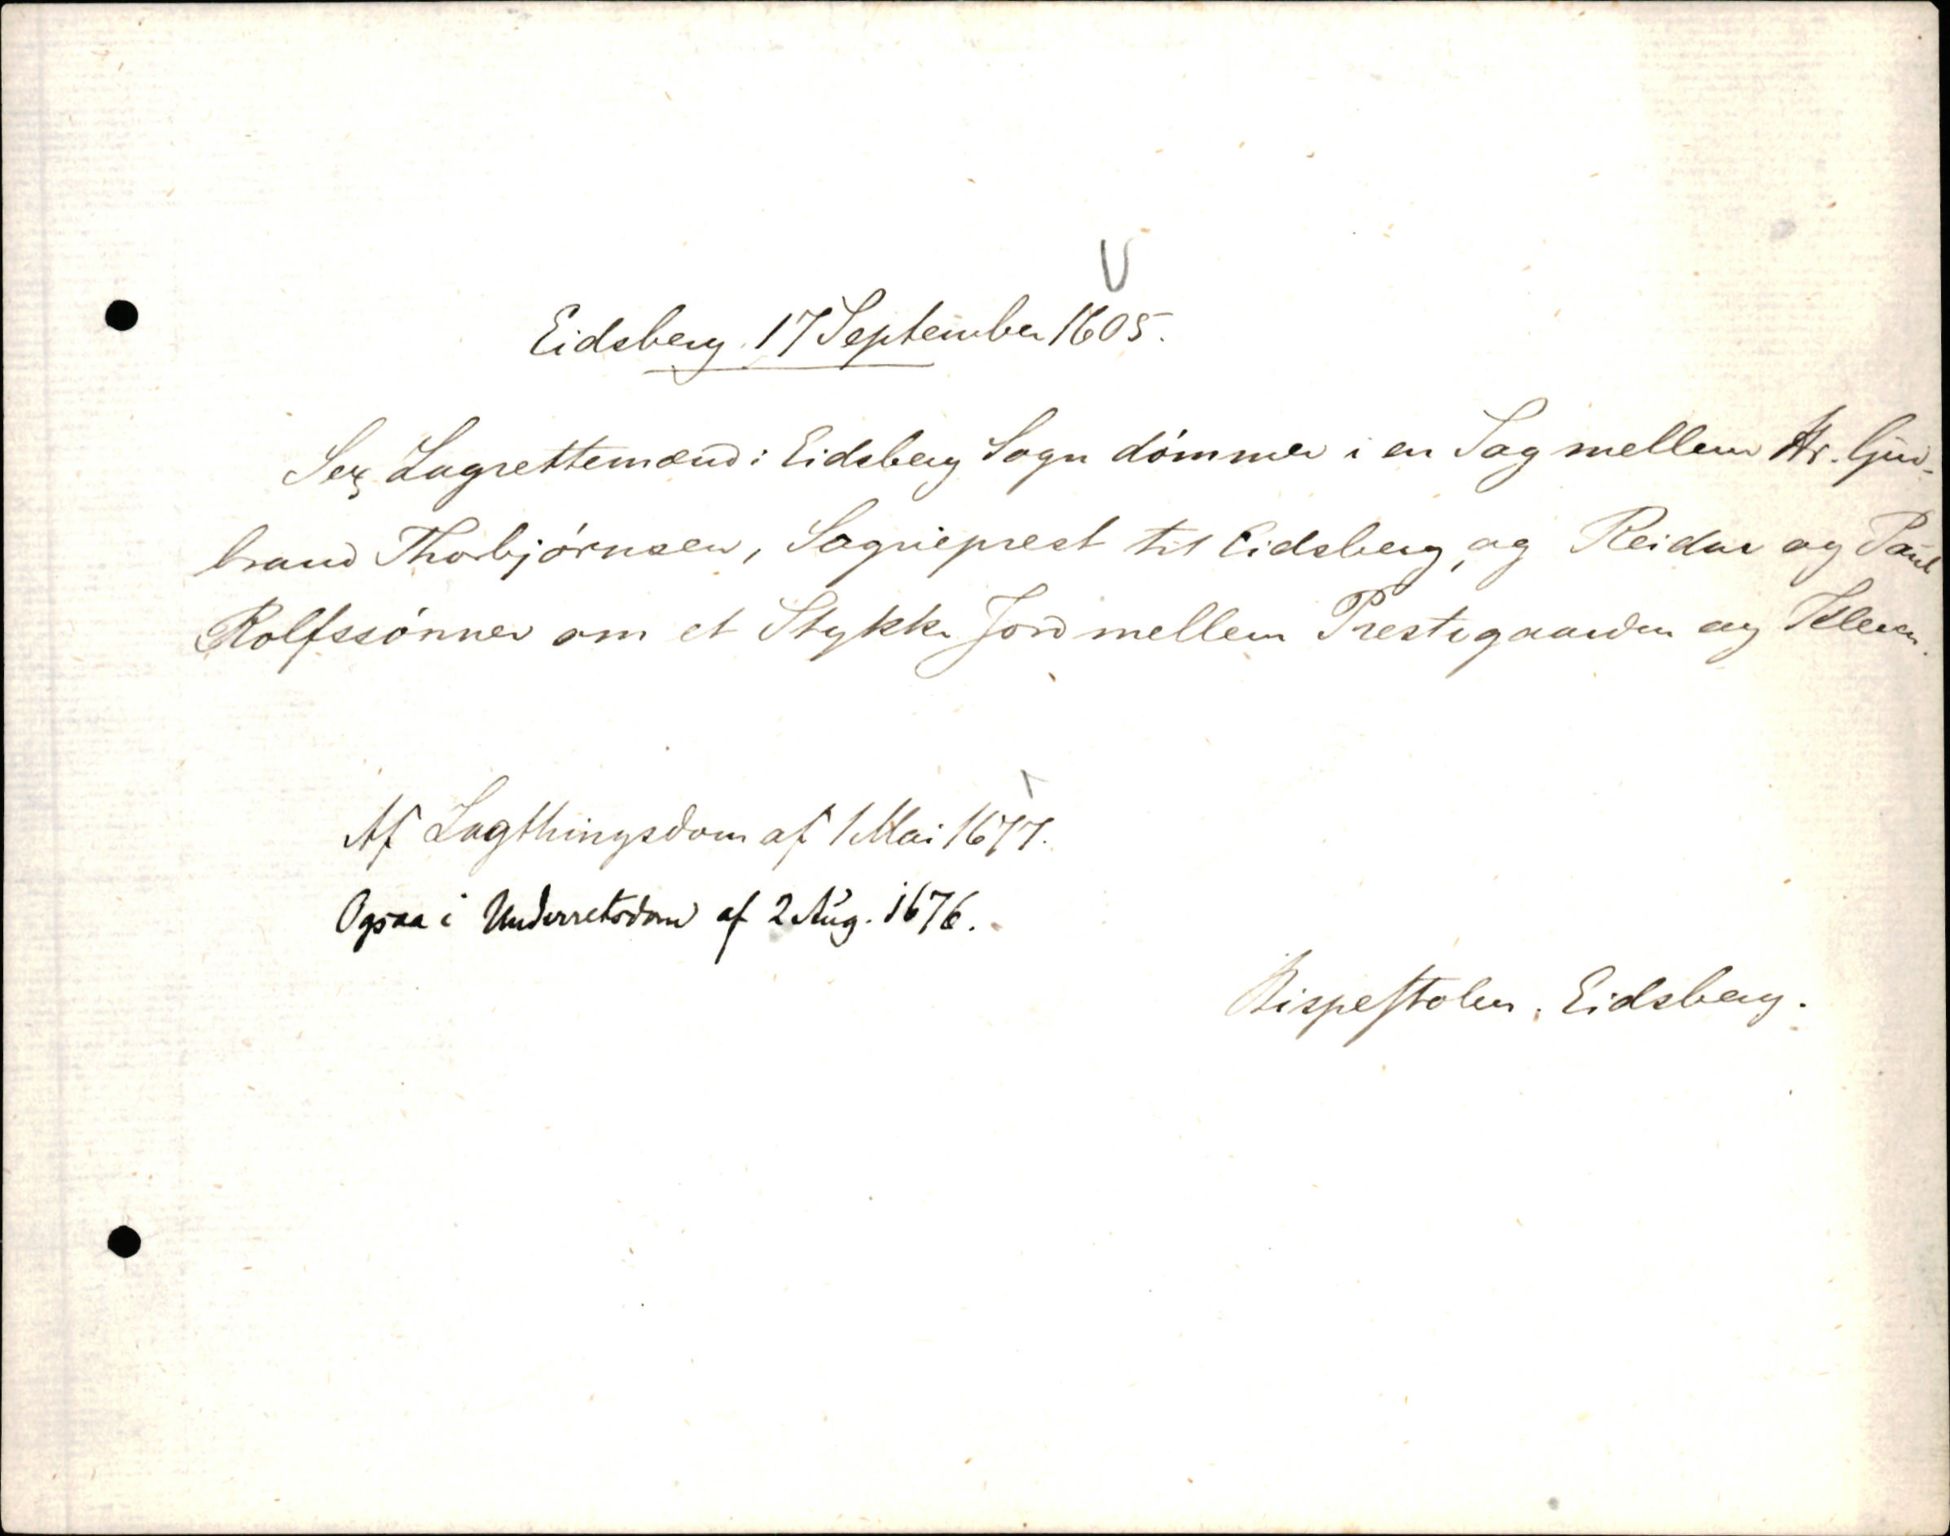 Eidsberg 17 September 1605.
Sex Lagrettemænd i Eidsberg Sogn dømmer i en Sag mellem Hr. Gud-
brand Thorbjørnsen, Sogneprest til Eidsberg, og Reidar og Paul
Rolfssønner om et Stykke Jord mellem Prestegaarden og
Af Lagthingsdom af 1 Mai 1677.
Ogsaa i Underretsdom af 2 Aug. 1676.
Bispestolen. Eidsberg.